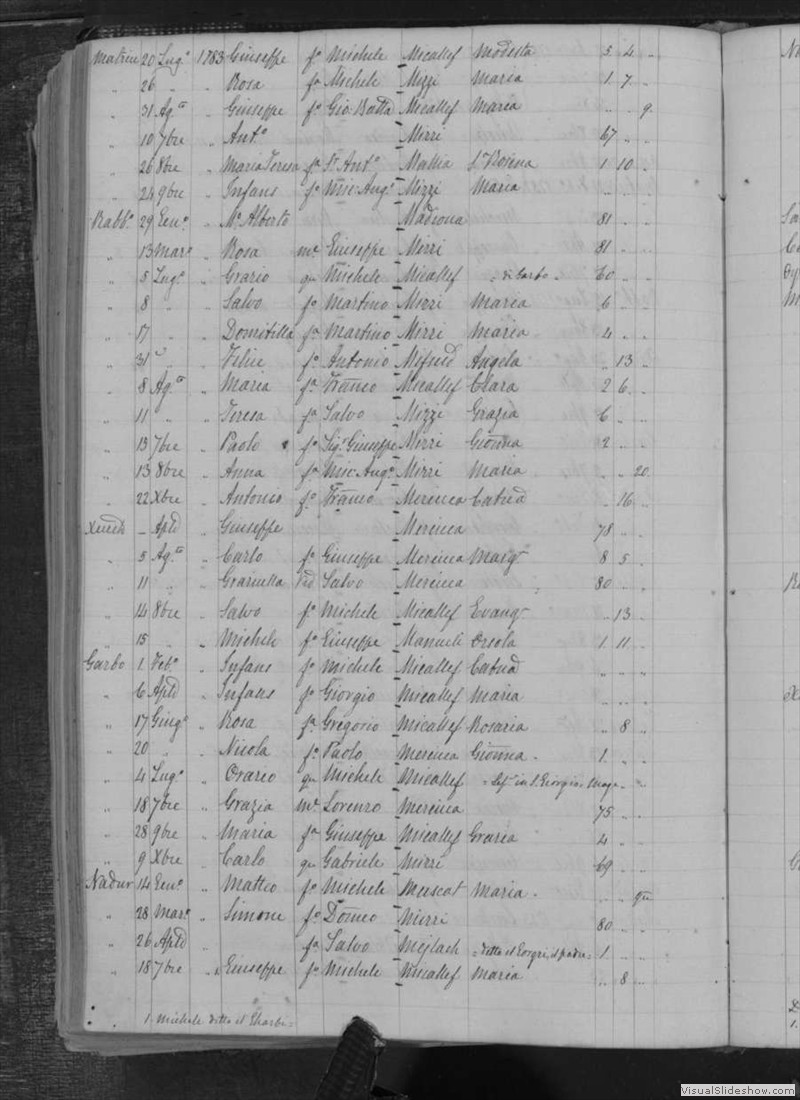 Matrice 20 Lug.o 1783 Giuseppe fo Michele Micallef Modesta 5 4 "
" 26 " " Rosa fa Michele Mizzi Maria 1 7 "
" 31 Ag.to " Giuseppe fo Gio Batta Micallef Maria " " 9
" 10 7bre " Ant.o Mizzi 67 " "
" 26 8bre " Maria Teresa fa Sr Ant.o Mallia 1 10 "
" 24 9bre " Infans fo Mic: Aug.o Mizzi Maria " " "
Rabb.o 29 Gen.o " Alberto Madiona 81 " "
" 13 Mar.o " Rosa me Giuseppe Mizzi 81 " "
" 5 Lug.o " Grazio qu Michele Micallef 60 " "
" 8 " " Salvo fo Martino Mizzi Maria 6 " "
" 17 " " Domitilla fa Martino Mizzi Maria 4 " "
" 31 " " Felice fo Antonio Angela " 13 "
" 8 Ag.to " Maria fa Franco Micallef Clara 2 6 "
" 11 " " Teresa fa Salvo Mizzi Grazia 6 " "
" 13 7bre " Paolo fo Sig.r Giuseppe Mizzi Gionna 2 " "
" 13 8bre " Anna fa Mic: Aug.o Mizzi Maria " " 20
" 22 Xbre " Antonio fo Franco Mercieca Catnd " 16 "
April " Giuseppe Mercieca 78 " "
" 5 Ag.to " Carlo fo Giuseppe Mercieca Marg.a 8 5 "
" 11 " " Vid Salvo Mercieca 80 " "
" 14 8bre " Salvo fo Michele Micallef Evang.a " 13 "
" 15 " " Michele fo Giuseppe Manueli Orsola 1 11 "
Garbo 1 Feb.o " Infans fo Michele Micallef Catnd " " "
" 6 April " Infans fo Giorgio Micallef Maria " " "
" 17 Giug.o " Rosa fa Gregorio Micallef Rosaria " 8 "
" 20 " " Nicola fo Paolo Mercieca Gionna 1 " "
" 4 Lug.o " qu Michele Micallef
" 18 7bre " Grazia me Lorenzo Mercieca 75 " "
" 28 9bre " Maria fa Giuseppe Micallef Grazia 4 " "
" 9 Xbre " Carlo qu Gabriele Mizzi 69 " "
Nadur 14 Gen.o " Matteo fo Michele Muscat Maria
" 28 Mar.o " Simone fo Domco Mizzi 80 " "
" 26 April fa Salvo Mejlach 1 " "
" 18 7bre " Giuseppe fo Michele Micallef Maria " 8 "
1. Michele ditto il
VisualSlideshow.com